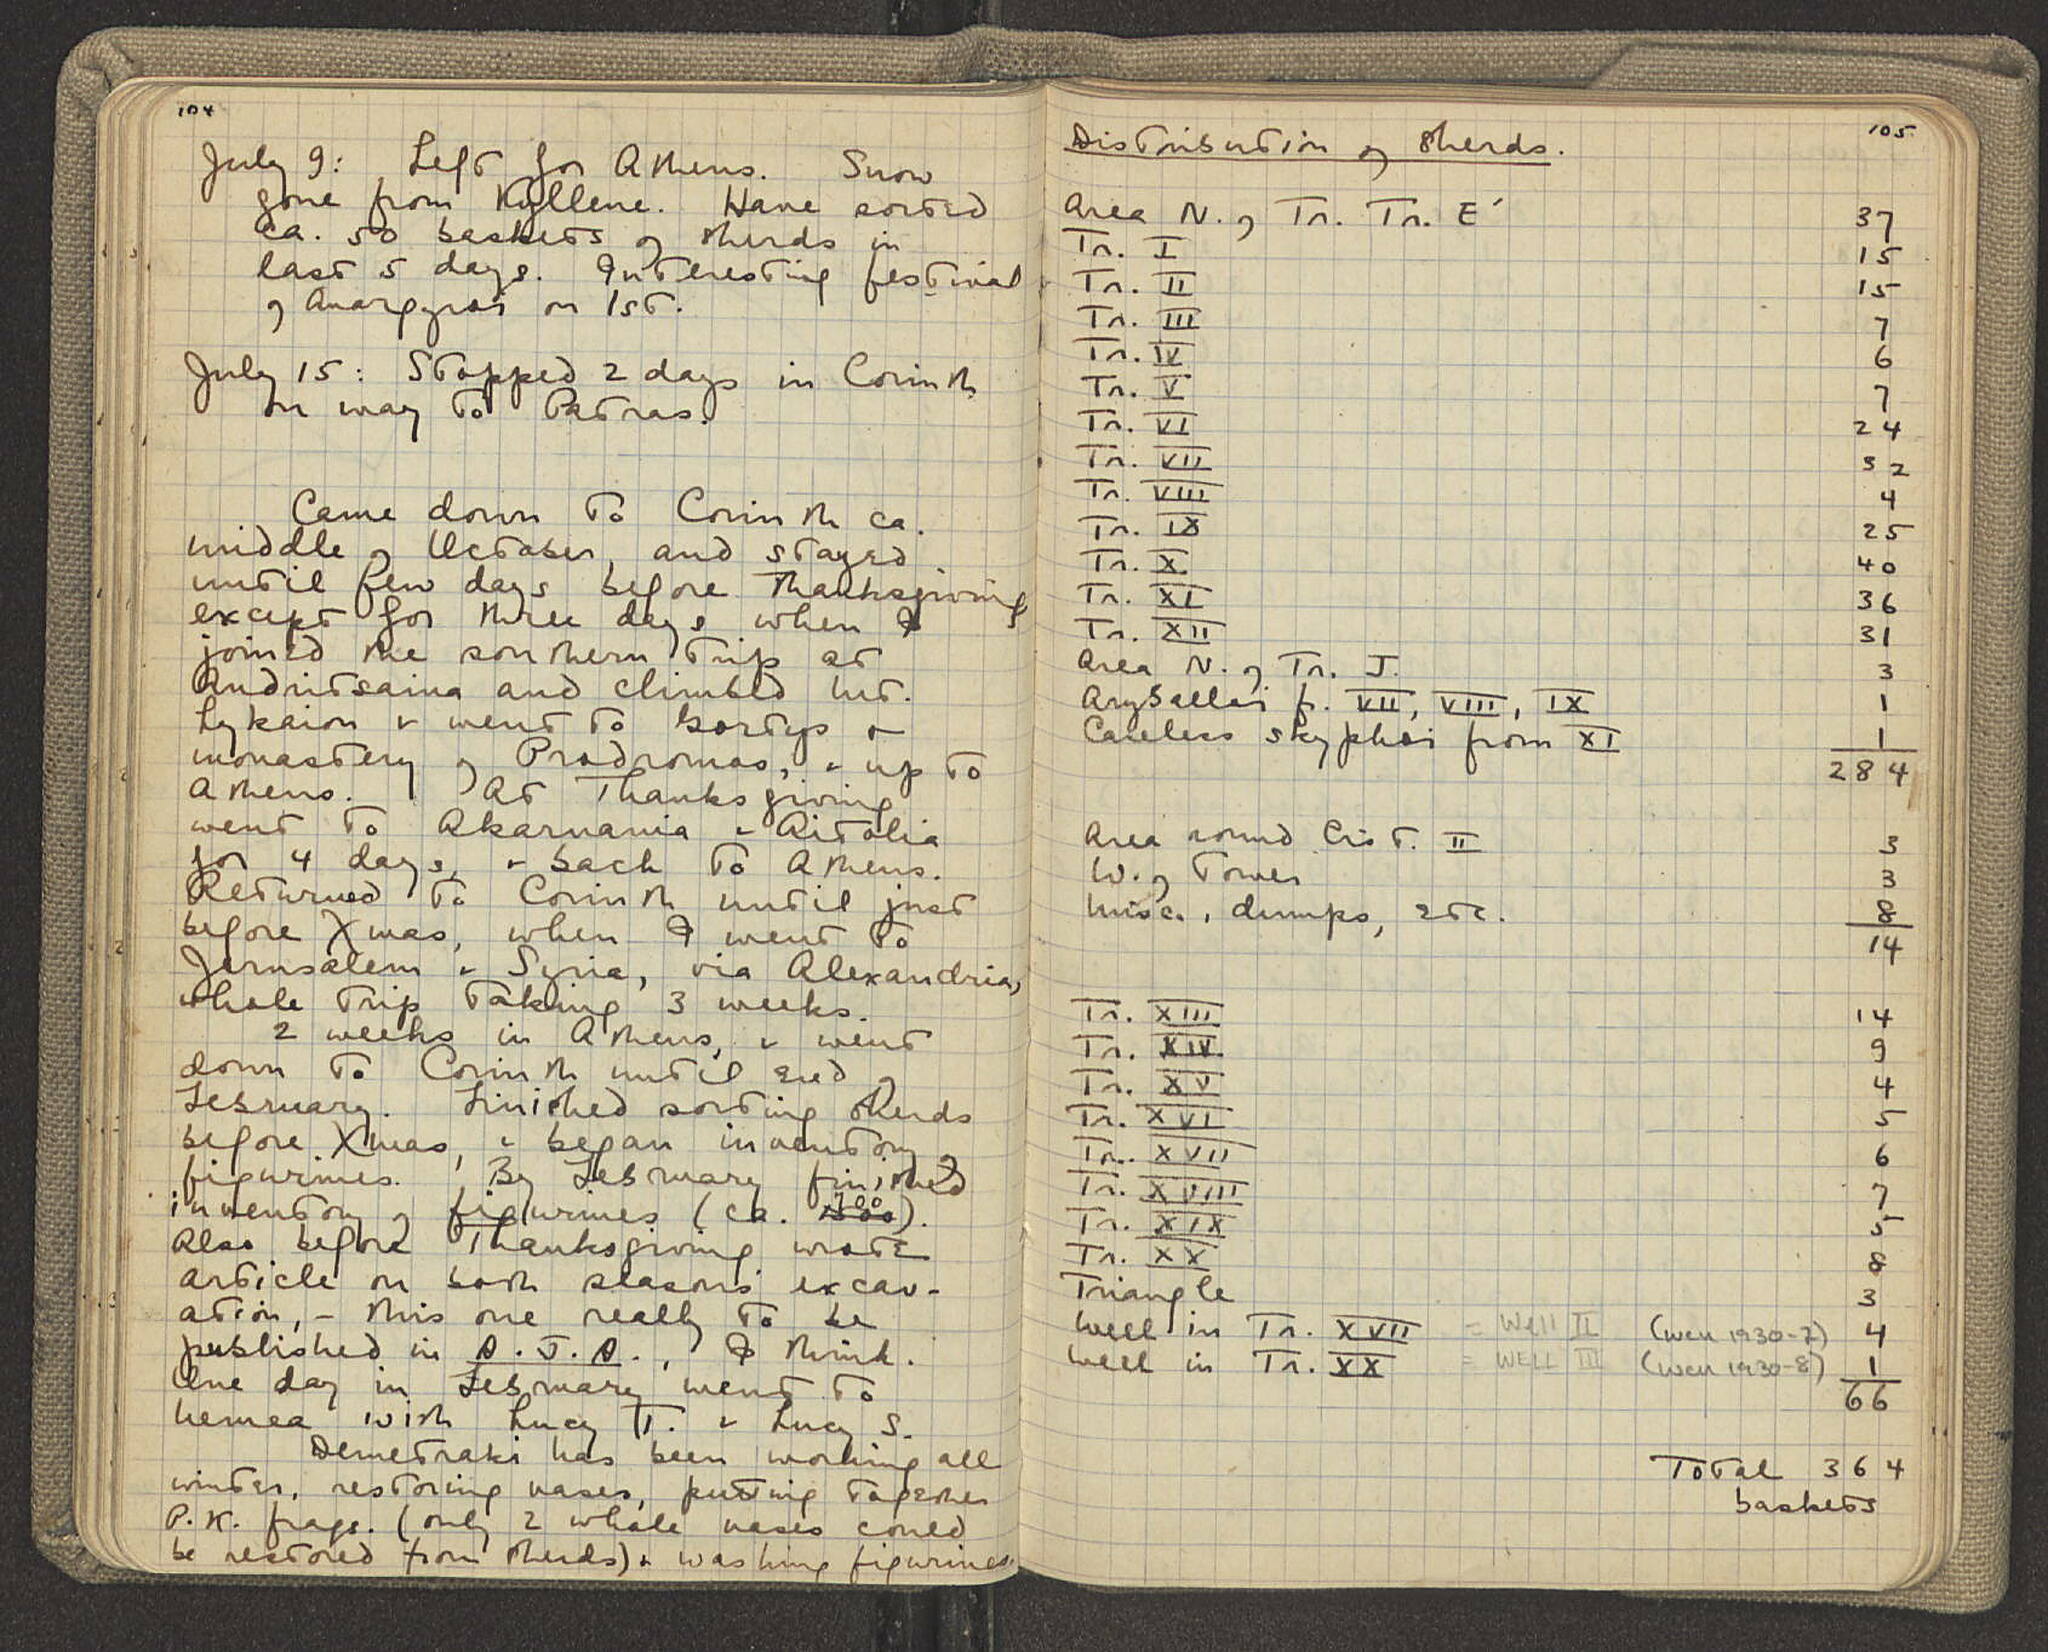 104
July 9: Left for Athens. Snow
gone from Kyllene. Have sorted
ca. 50 baskets of sherds in
last 5 days. Interesting festival
of Anargyroi on 1st.
July 15: Stopped 2 days in Corinth
on way to Patras.
Came down to Corinth ca.
middle of October, and stayed
until few days before Thanksgiving
except for three days when I
joined the southern trip at
Andritsaina and climbed Mt.
Lykaion & went to Gortys &
monastery of Prodromos, & up to
Athens. At Thanksgiving
went to Akarnania & Aitolia
for 4 days, & back to Athens.
Returned to Corinth until just
before Xmas, when I went to
Jerusalem & Syria, via Alexandria,
whole trip taking 3 weeks.
2 weeks in Athens, & went
down to Corinth until end of
February. Finished sorting sherds
before Xmas, & began inventory of
figurines. By February finished
inventory of figurines (ca.
Also before Thanksgiving wrote
article on both seasons' excav-
ation, - this one really to be
published in A.J.A., I think.
One day in February went to
Nemea with Lucy T. & Lucy S.
Demetraki has been working all
winter, restoring vases, putting together
P.K. frags. (only 2 whole vases could
be restored from sherds) & washing figurines.
105
Distribution of Sherds.
Area N. of Tr. Tr. E' 37
Tr. I 15
Tr. II 15
Tr. III 7
Tr. IV 6
Tr. V 7
Tr. VI 24
Tr. VII 32
Tr. VIII 4
Tr. IX 25
Tr. X 40
Tr. XI 36
Tr. XII 31
Area N. of Tr. J. 3
Aryballoi fr. VII, VIII, IX 1
Careless skyphoi from XI 1
284
Area round Cist. II 3
W. of Tower 3
Misc., dumps, etc. 8
14
Tr. XIII 14
Tr. XIV 9
Tr. XV 4
Tr. XVI 5
Tr. XVII 6
Tr. XVIII 7
Tr. XIX 5
Tr. XX 8
Triangle 3
Well in Tr. XVII = Well II (Well 1930-7) 4
Well in Tr. XX = WELL III (Well 1930-8) 1
66
Total 364
baskets